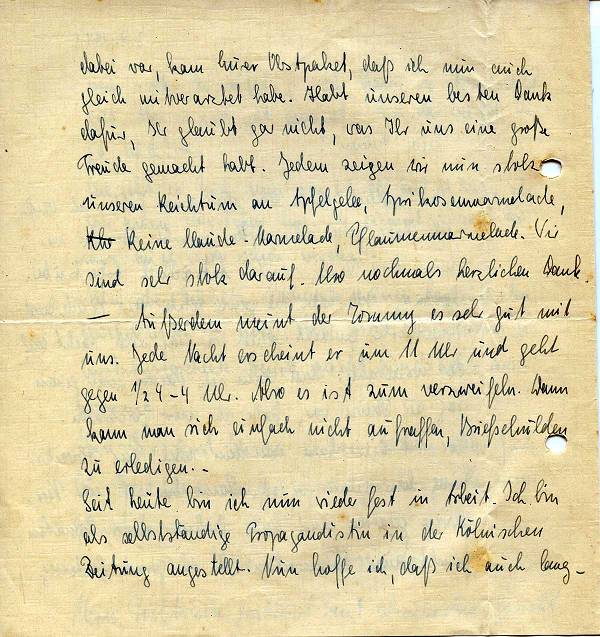 dabei war, kam Eurer Obstpaket, daß ich nun auch
gleich mitverarztet habe. Habt unseren besten Dank
dafür, Ihr glaubt gar nicht, was Ihr uns eine große
Freude gemacht habt. Jedem zeigen wir nun stolz
unseren Reichtum an Apfelgelee, Aprikosenmarmelade,
Reine Claude-Marmelade, Pflaumenmarmelade. Wir
sind sehr stolz darauf. Also nochmals herzlichen Dank.
— Außerdem meint der Tommy es sehr gut mit
uns. Jede Nacht erscheint er um 11 Uhr und geht
gegen 1/2 4-4 Uhr. Also es ist zum verzweifeln. Dann
kann man sich einfach nicht aufraffen, Briefschulden
zu erledigen. -
Seit heute bin ich nun wieder fest in Arbeit. Ich bin
als selbstständige Propagandistin in der Kölnischen
Zeitung angestellt. Nun hoffe ich, daß ich auch lang-